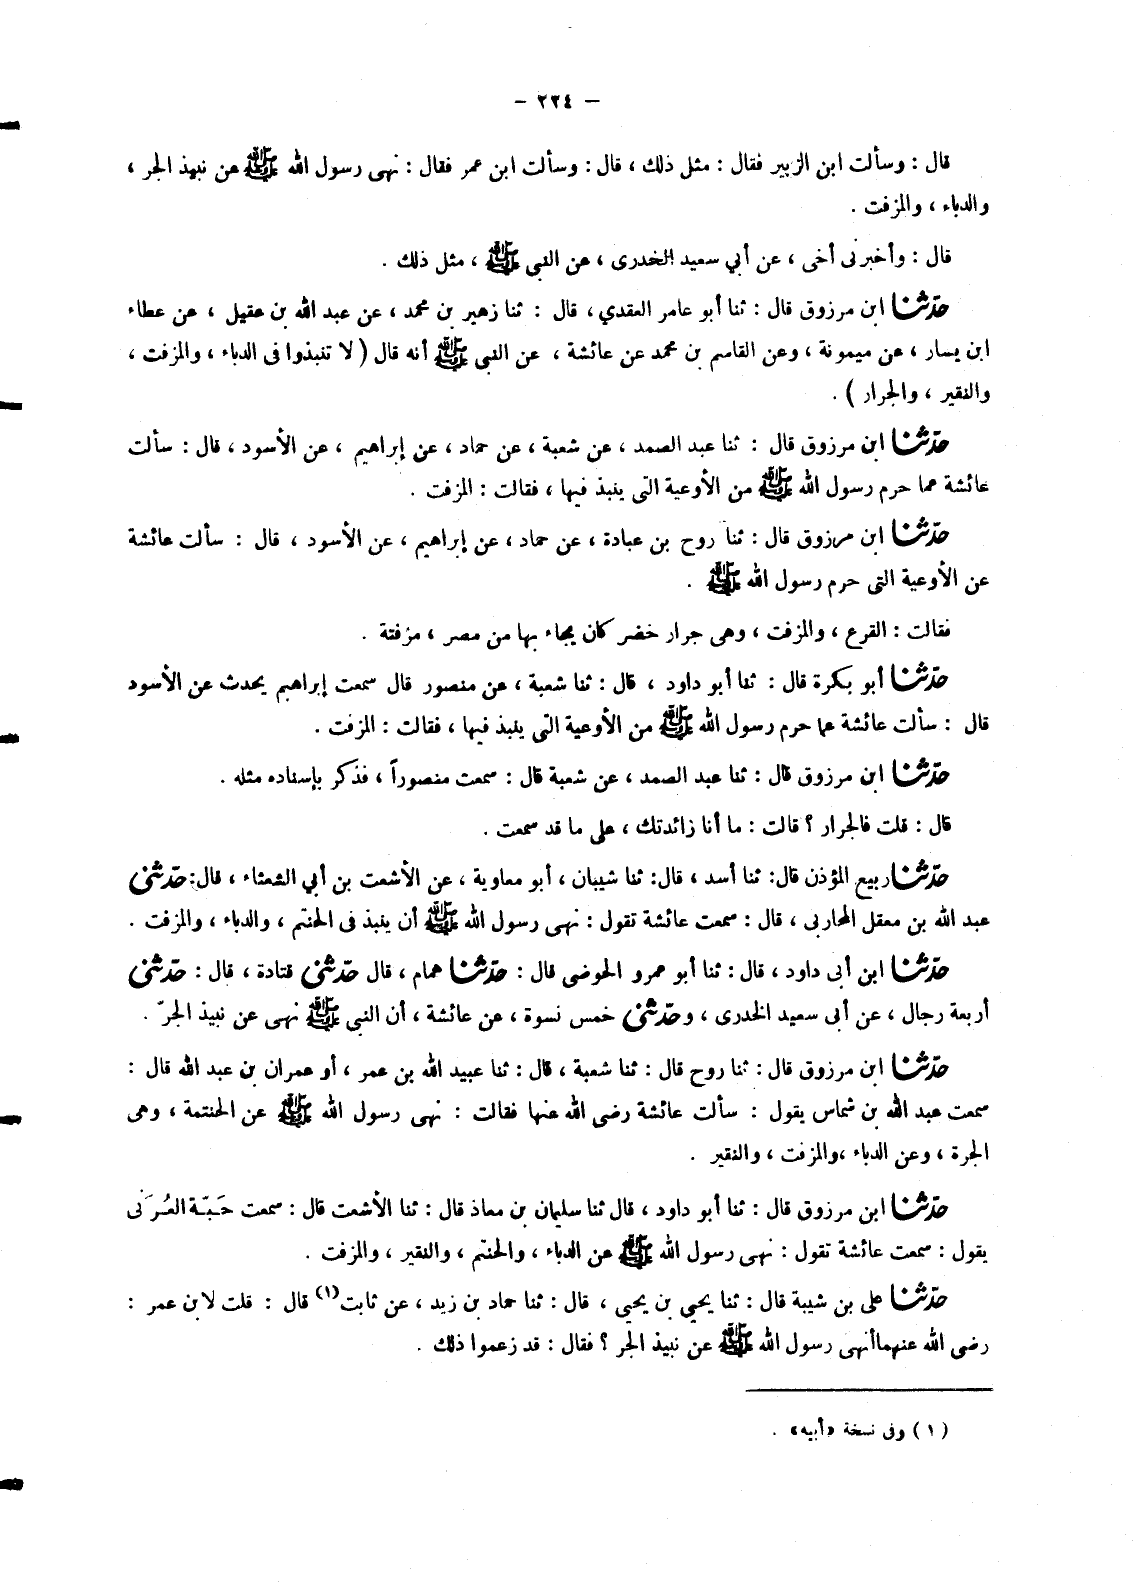 — ٢٢٤ —
قال : وسألت ابن الزبير فقال : مثل ذلك ، قال : وسألت ابن عمر فقال : نهى رسول الله ﷺ عن نبيذ الجر ،
والدباء ، والمزفت .
قال : وأخبرنى أخى ، عن أبي سعيد الخدرى ، عن النبي ﷺ ، مثل ذلك .
حدّثنا ابن مرزوق قال : ثنا أبو عامر العقدي ، قال : ثنا زهير بن محمد ، عن عبد الله بن عقيل ، عن عطاء
ابن يسار ، عن ميمونة ، وعن القاسم بن محمد عن عائشة ، عن النبي ﷺ أنه قال ( لا تنبذوا فى الدباء ، والمزفت ،
والنقير ، والجرار ) .
حدّثنا ابن مرزوق قال : ثنا عبد الصمد ، عن شعبة ، عن حماد ، عن إبراهيم ، عن الأسود ، قال : سألت
عائشة عما حرم رسول الله ﷺ من الأوعية التى ينبذ فيها ، فقالت : المزفت .
حدّثنا ابن مرزوق قال : ثنا روح بن عبادة ، عن حماد ، عن إبراهيم ، عن الأسود ، قال : سألت عائشة
عن الأوعية التى حرم رسول الله ﷺ .
فقالت : القرع ، والمزفت ، وهى جرار خضر كان يجاء بها من مصر ، مزفتة .
حدّثنا أبو بكرة قال : ثنا أبو داود ، قال : ثنا شعبة ، عن منصور قال سمعت إبراهيم يحدث عن الأسود
قال : سألت عائشة عما حرم رسول الله ﷺ من الأوعية التى ينبذ فيها ، فقالت : المزفت .
حدّثنا ابن مرزوق قال : ثنا عبد الصمد ، عن شعبة قال : سمعت منصوراً ، فذكر بإسناده مثله .
قال : قلت فالجرار ؟ قالت : ما أنا زائدتك ، على ما قد سمعت .
حدّثنا ربيع المؤذن قال: ثنا أسد ، قال: ثنا شيبان ، أبو معاوية ، عن الأشعت بن أبي الشعثاء ، قال: حدّثنى
عبد الله بن معقل المحاربى ، قال : سمعت عائشة تقول : نهى رسول الله ﷺ أن ينبذ فى الحنتم ، والدباء ، والمزفت .
حدّثنا ابن أبى داود ، قال : ثنا أبو عمرو الحوضى قال : حدّثنا همام ، قال حدّثنى قتادة ، قال : حدّثنى
أربعة رجال ، عن أبى سعيد الخدرى ، وحدّثنى خمس نسوة ، عن عائشة ، أن النبي ﷺ نهى عن نبيذ الجرّ .
حدّثنا ابن مرزوق قال : ثنا روح قال : ثنا شعبة ، قال : ثنا عبيد الله بن عمر ، أو عمران بن عبد الله قال :
سمعت عبد الله بن شماس يقول : سألت عائشة رضى الله عنها فقالت : نهى رسول الله ﷺ عن الحنتمة ، وهى
الجرة ، وعن الدباء ،والمزفت ، والنقير .
حدّثنا ابن مرزوق قال : ثنا أبو داود ، قال ثنا سليمان بن معاذ قال : ثنا الأشعت قال : سمعت حَبّة العُرَنى
يقول : سمعت عائشة تقول : نهى رسول الله ﷺ عن الدباء ، والحنتم ، والنقير ، والمزفت .
حدّثنا على بن شيبة قال : ثنا يحيي بن يحيى ، قال : ثنا حماد بن زيد ، عن ثابت(١) قال : قلت لابن عمر :
رضى الله عنهماأنهى رسول الله ﷺ عن نبيذ الجر ؟ فقال : قد زعموا ذلك .
(١) وفى نسخة «أبيه» .